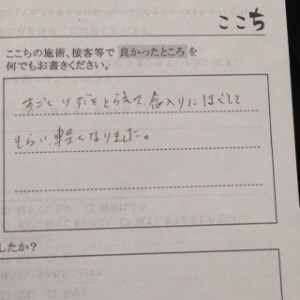 ここち
ここちの施術、接客等で良かったところを
何でもお書きください。
すごく ツボをとらえて、念入りにほぐして
もらい、軽くなりました。
したか？